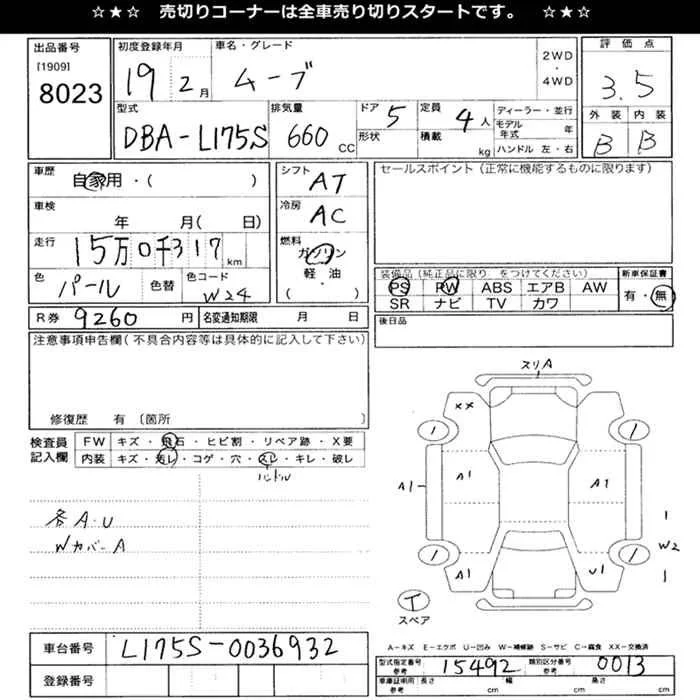 ☆★☆ 売切りコーナーは全車売り切りスタートです。 ☆★☆
出品番号 [1909] 8023
初度登録年月 19 2月
車名・グレード ムーブ
2WD・4WD
評価点 3.5
型式 DBA-L175S
排気量 660 CC
ドア 5 形状
定員 4人 積載 kg
ディーラー・並行
モデル年式 年
ハンドル 左・右
外装 内装
B B
車歴 自家用・( )
シフト AT
セールスポイント(正常に機能するものに限ります)
車検 年 月( 日)
冷房 AC
走行 15万0千317km
燃料 ガソリン・軽油・( )
色 パール 色替
色コード W24
装備品(純正品に限り をつけてください)
PS PW ABS エアB AW
SR ナビ TV カワ
新車保証書 有・無
R券 9260円
名変通知期限 月 日
後日品
注意事項申告欄(不具合内容等は具体的に記入して下さい)
修復歴 有〔箇所 〕
検査員記入欄
FW キズ・飛石・ヒビ割・リペア跡・X要
内装 キズ・汚レ・コゲ・穴・スレ・キレ・破レ
ハンドル
各A・U
WカバーA
スリA
XX
A1
A1
A1
A1
U1
W2
スペア
車台番号 L175S-0036932
登録番号
A-キズ E-エクボ U-凹み W-補修跡 S-サビ C-腐食 XX-交換済
型式指定番号 参考 15492 類別区分番号 参考 0013
車庫証明用 参考 長さ cm 幅 cm 高さ cm